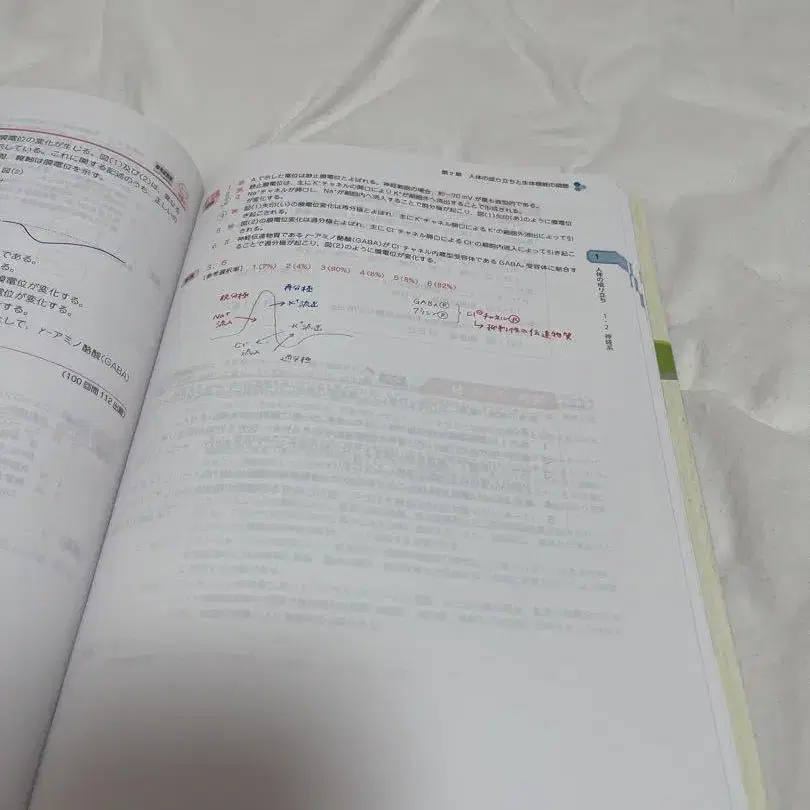 膜電位の変化が生じる。図(1)及び(2)は、
示している。これに関する記述のうち、正しいの
縦軸は膜電位を示す。
図(2)
である。
る。
膜電位が変化する。
電位が変化する。
する。
として、γ-アミノ酪酸(GABA)
(100回問112出題)
第2章 人体の成り立ちと生体機能の調節
1 誤 Aで示した電位は静止膜電位とよばれる。神経細胞の場合、約-70mVが最も典型的である。
静止膜電位は、主にK⁺チャネルの開口によりK⁺が細胞外へ流出することで形成される。
Na⁺チャネルが開口し、Na⁺が細胞内へ流入することで脱分極が起こり、図(1)矢印(あ)のように膜電位
が変化する。
図(1)矢印(い)の膜電位変化は再分極とよばれ、主にK⁺チャネル開口によるK⁺の細胞外流出によって引
き起こされる。
5 誤 図(2)の膜電位変化は過分極とよばれ、主にCl⁻チャネル開口によるCl⁻の細胞内流入によって引き起こ
される。
6 正 神経伝達物質であるγ-アミノ酪酸(GABA)がCl⁻チャネル内蔵型受容体であるGABAA受容体に結合す
ることで過分極が起こり、図(2)のように膜電位が変化する。
3、6
【参考選択率】 1(7%) 2(4%) 3(90%) 4(6%) 5(8%) 6(82%)
脱分極
再分極
Na⁺
流入
K⁺流出
K⁺流出
Cl⁻
流入
過分極
GABA Ⓡ
グリシン Ⓡ
Cl⁻チャネル Ⓡ
↳抑制性の伝達物質
1
人体の成り立ち
1・2 神経系